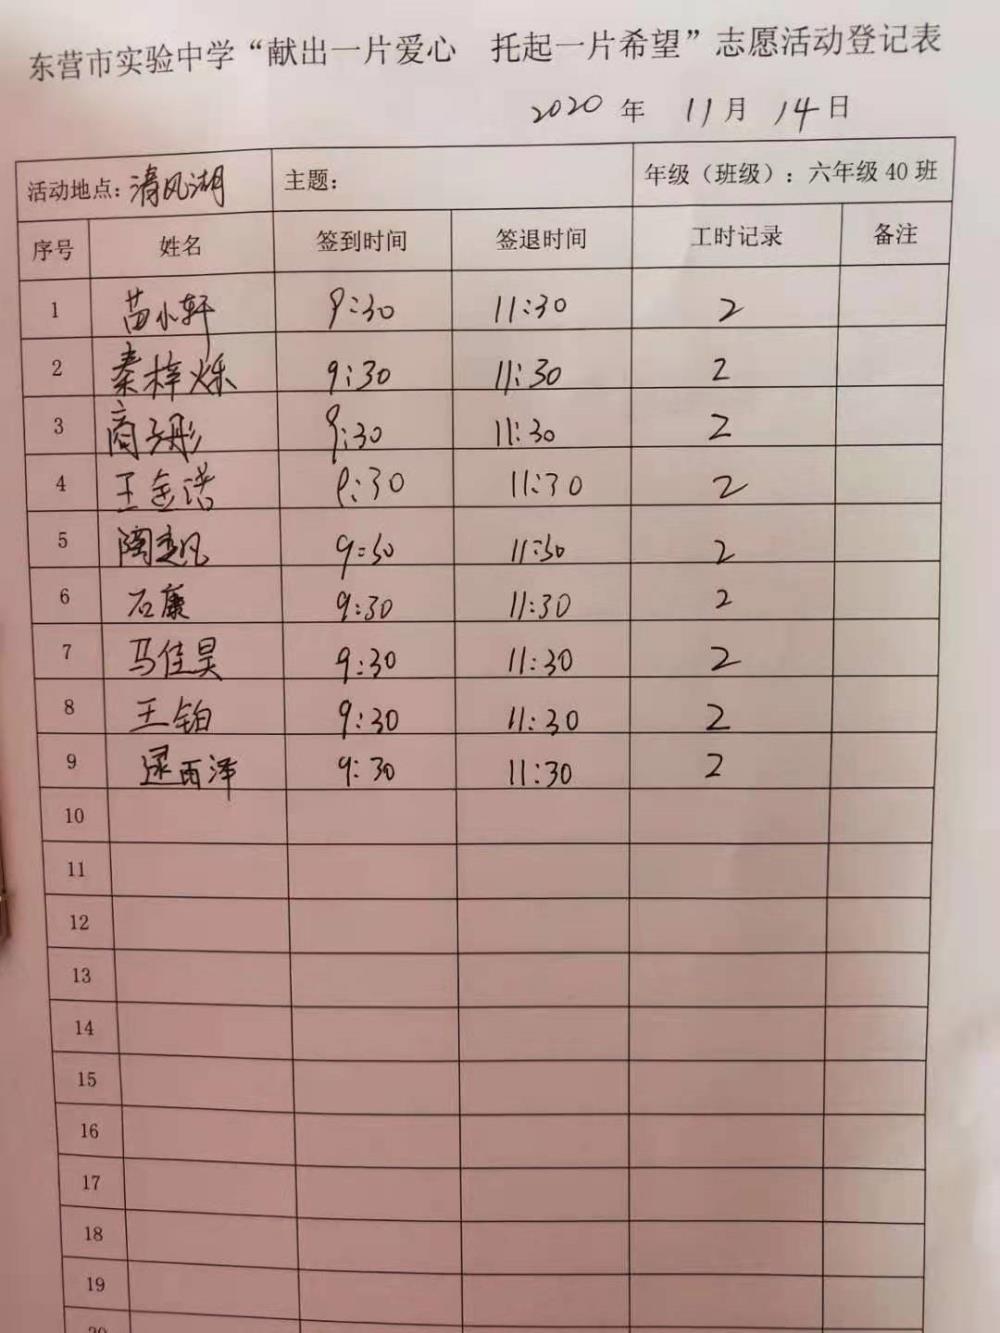 东营市实验中学“献出一片爱心 托起一片希望”志愿活动登记表
2020 年 11 月 14 日
活动地点：清风湖 主题： 年级（班级）：六年级 40 班
序号 姓名 签到时间 签退时间 工时记录 备注
1 苗小轩 9:30 11:30 2
2 秦梓烁 9:30 11:30 2
3 商子彤 9:30 11:30 2
4 王金浩 9:30 11:30 2
5 9:30 11:30 2
6 石康 9:30 11:30 2
7 马佳昊 9:30 11:30 2
8 王铂 9:30 11:30 2
9 逯雨泽 9:30 11:30 2
10
11
12
13
14
15
16
17
18
19
20